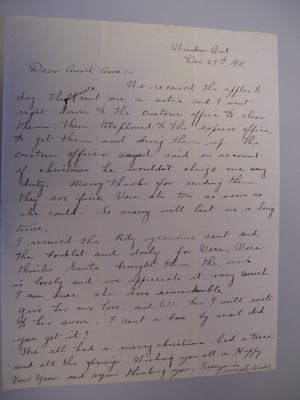 Windsor Ont
Dec 29th 1911
Dear Aunt Ann:-
We received the apples to
day they sent me a notice and I went
right down to the custom office to clear
them. Then telephoned to the express office
to get them and bring them up. The
custom officer sayed said on account
of christmas he wouldn't charge me any
duty. Many thanks for sending them
they are fine Vera ate two as soon as
she could. So many will last us a long
time.
I received the kity grandma sent and
the booklet and doily for Vera, Vera
thinks Santa bought them the work
is lovely and we apreciate it very much
I am sure she
give her our love, and tell her I will write
to her soon. I sent a box by mail did
you get it?
We all had a merry christmas, had a tree
and all the fixings. Wishing you all a Happy
New Year, and again thanking you,